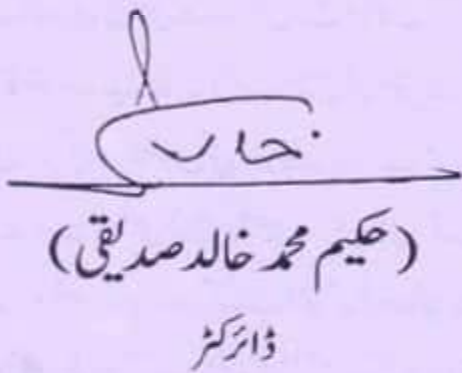 خالد
(حکیم محمد خالد صدیقی)
ڈائرکٹر